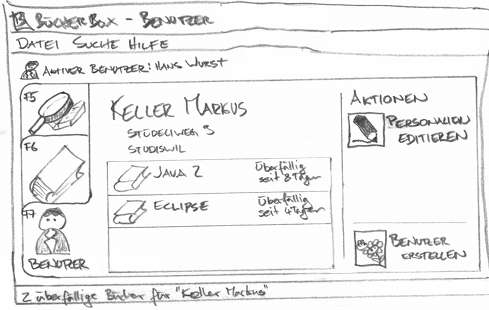 BÜCHERBOX - BENUTZER
DATEI SUCHE HILFE
AKTIVER BENUTZER: HANS WURST
F5
F6
F7
BENUTZER
KELLER MARKUS
STUDELIWEG 5
STUDISWIL
JAVA 2
Überfällig
seit 8 Tagen
ECLIPSE
Überfällig
seit 4 Tagen
AKTIONEN
PERSONALIEN
EDITIEREN
BENUTZER
ERSTELLEN
2 überfällige Bücher für "Keller Markus"